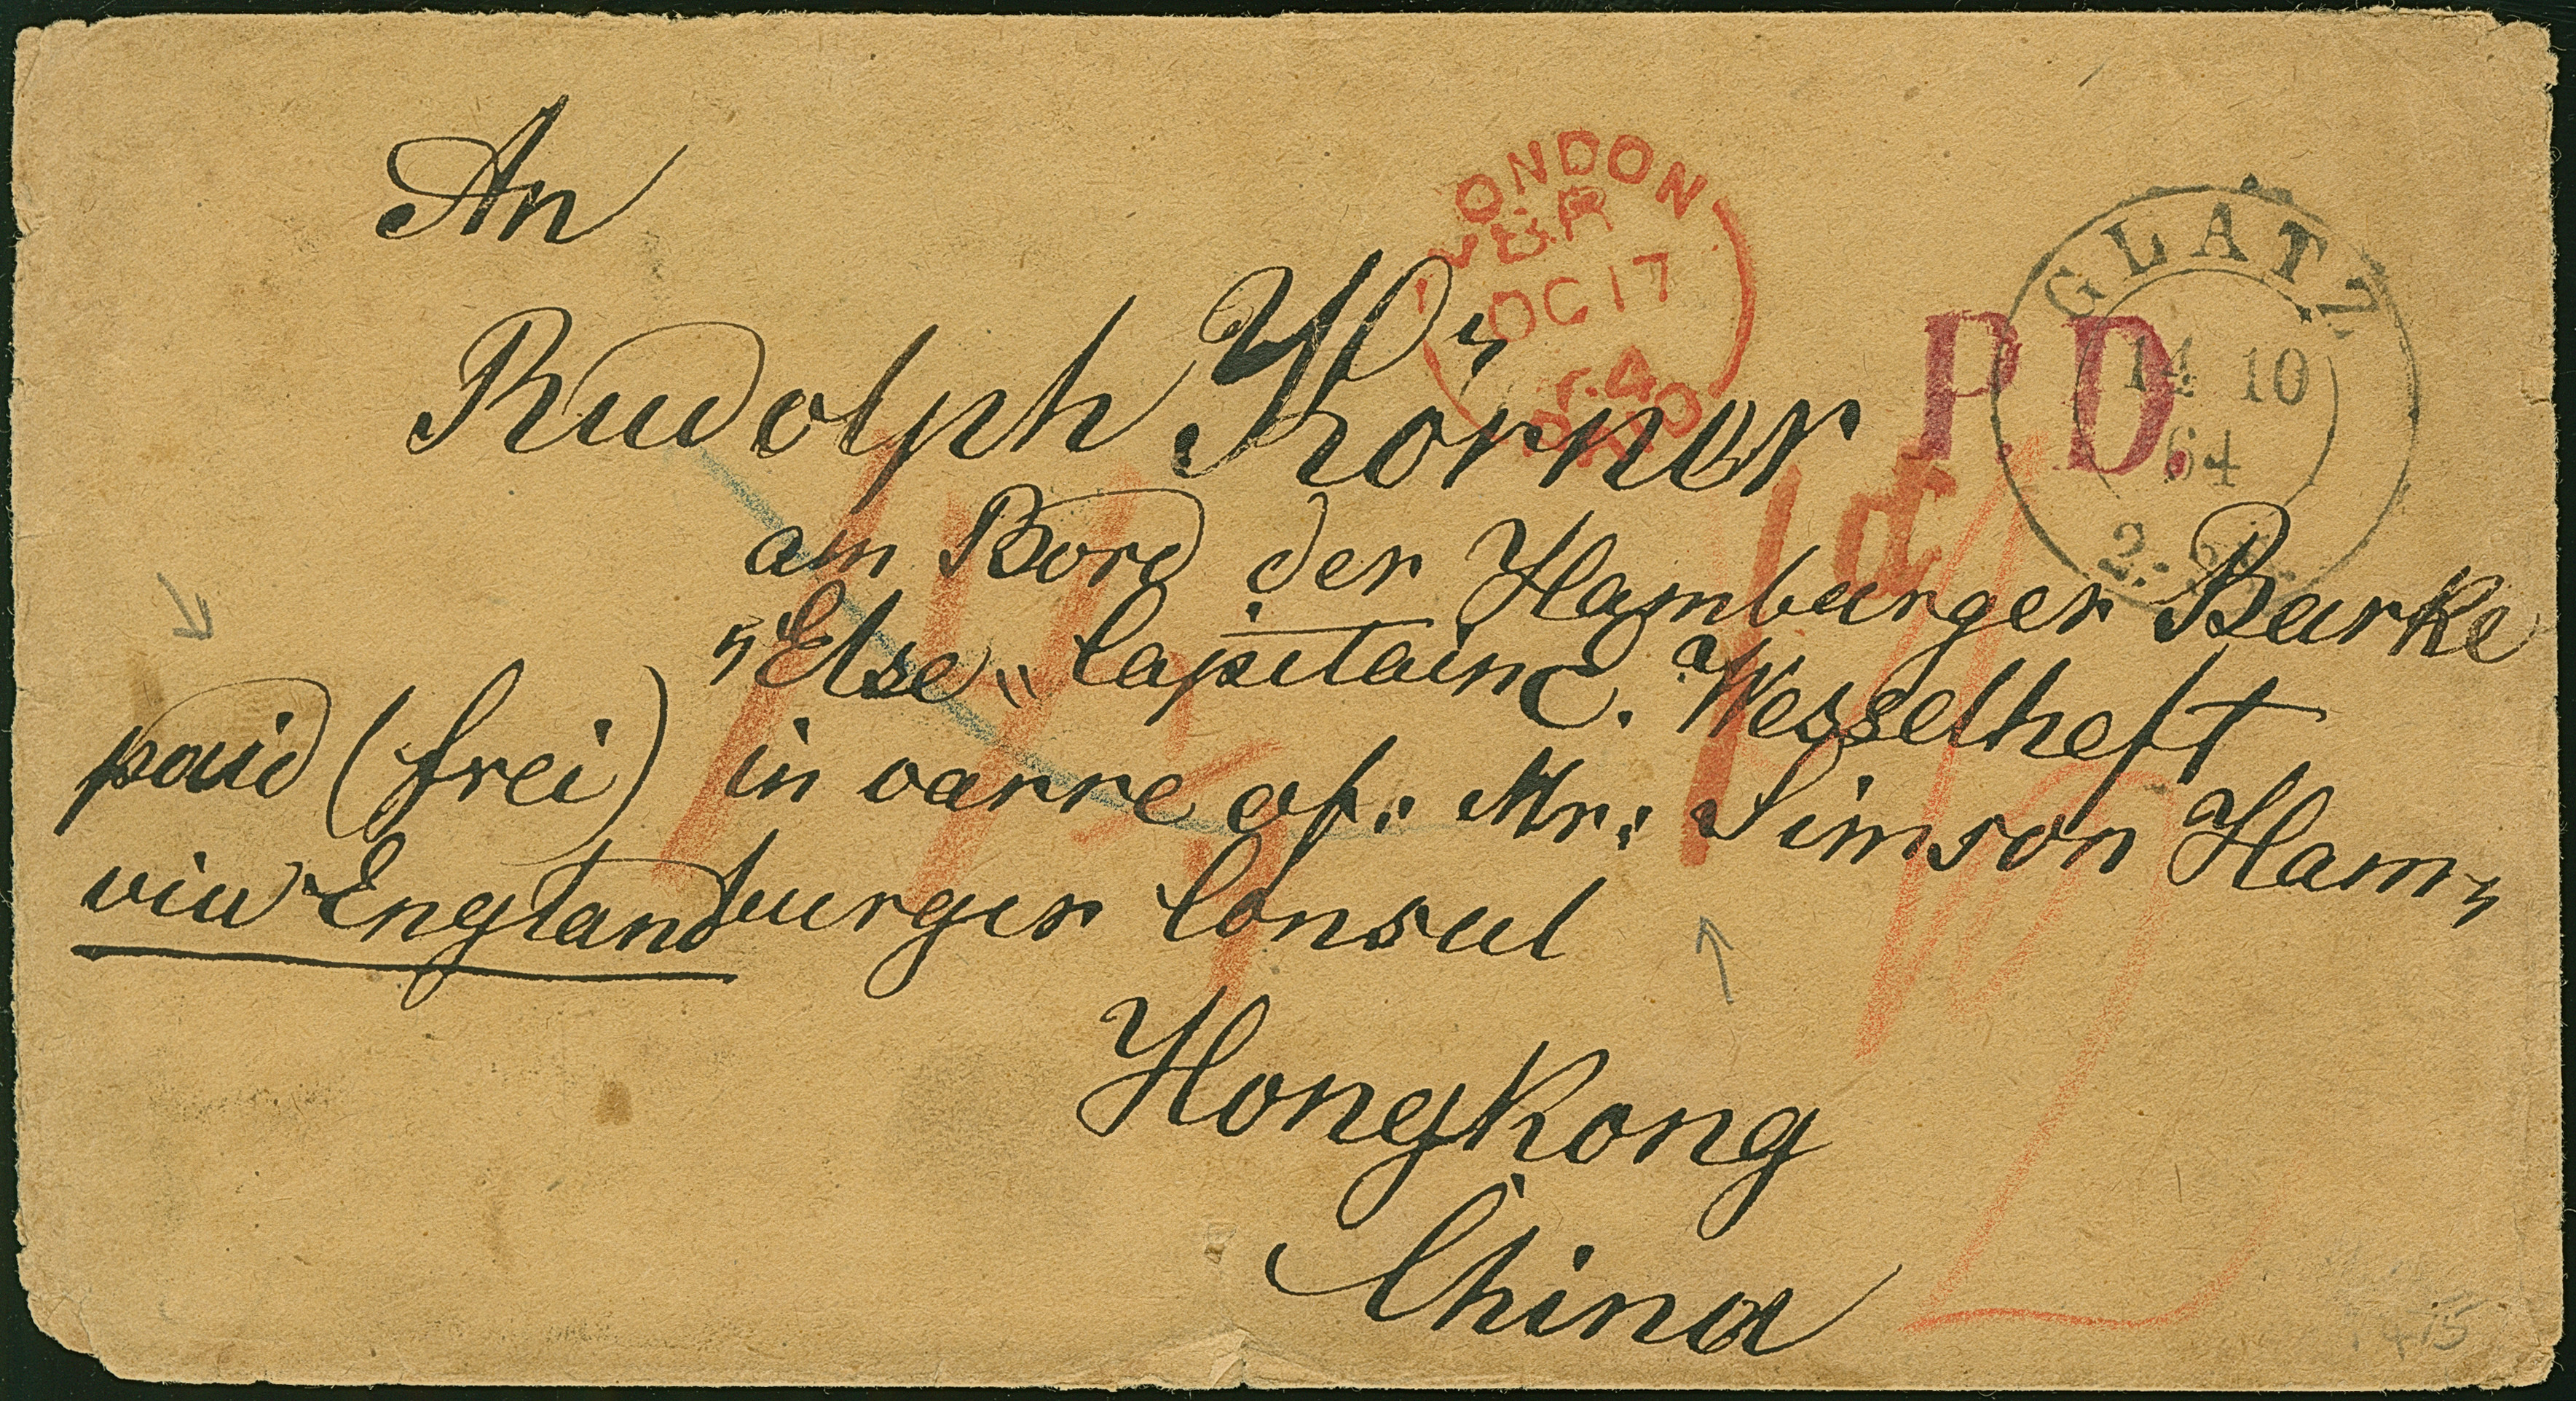 An
LONDON
OC 17
64
PAID
GLATZ
14 10
64
P.D.
Rudolph Körner
am Bord der Hamburger Barke
„Else“ Capitain E. Wesselheft
1d
paid (frei) in carre of: Mr: Simson Ham„
via England burger Consul
Hongkong
China